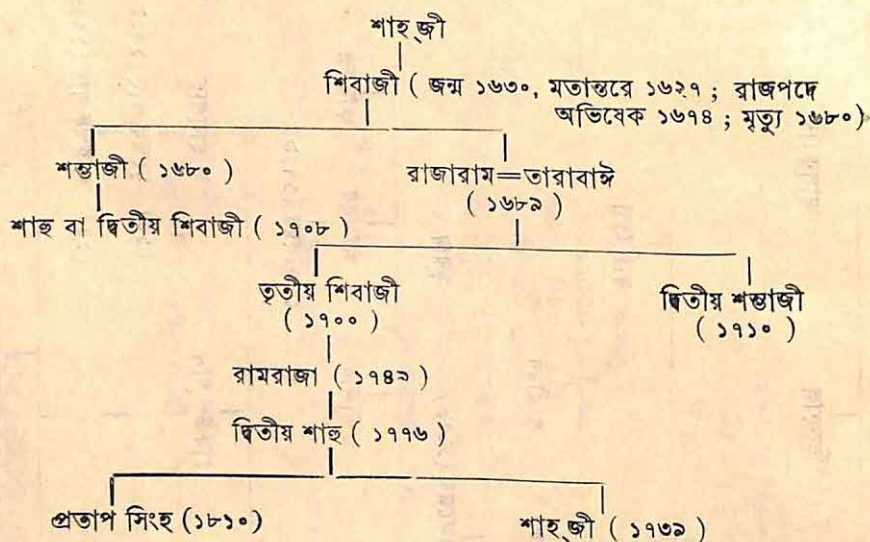 শাহ্‌জী
শিবাজী ( জন্ম ১৬৩০, মতান্তরে ১৬২৭ ; রাজপদে
অভিষেক ১৬৭৪ ; মৃত্যু ১৬৮০ )
শম্ভাজী ( ১৬৮০ )
রাজারাম=তারাবাঈ
( ১৬৮৯ )
শাহু বা দ্বিতীয় শিবাজী ( ১৭০৮ )
তৃতীয় শিবাজী
( ১৭০০ )
দ্বিতীয় শম্ভাজী
( ১৭১০ )
রামরাজা ( ১৭৪৯ )
দ্বিতীয় শাহু ( ১৭৭৬ )
প্রতাপ সিংহ (১৮১০)
শাহ্‌জী ( ১৭৩৯ )